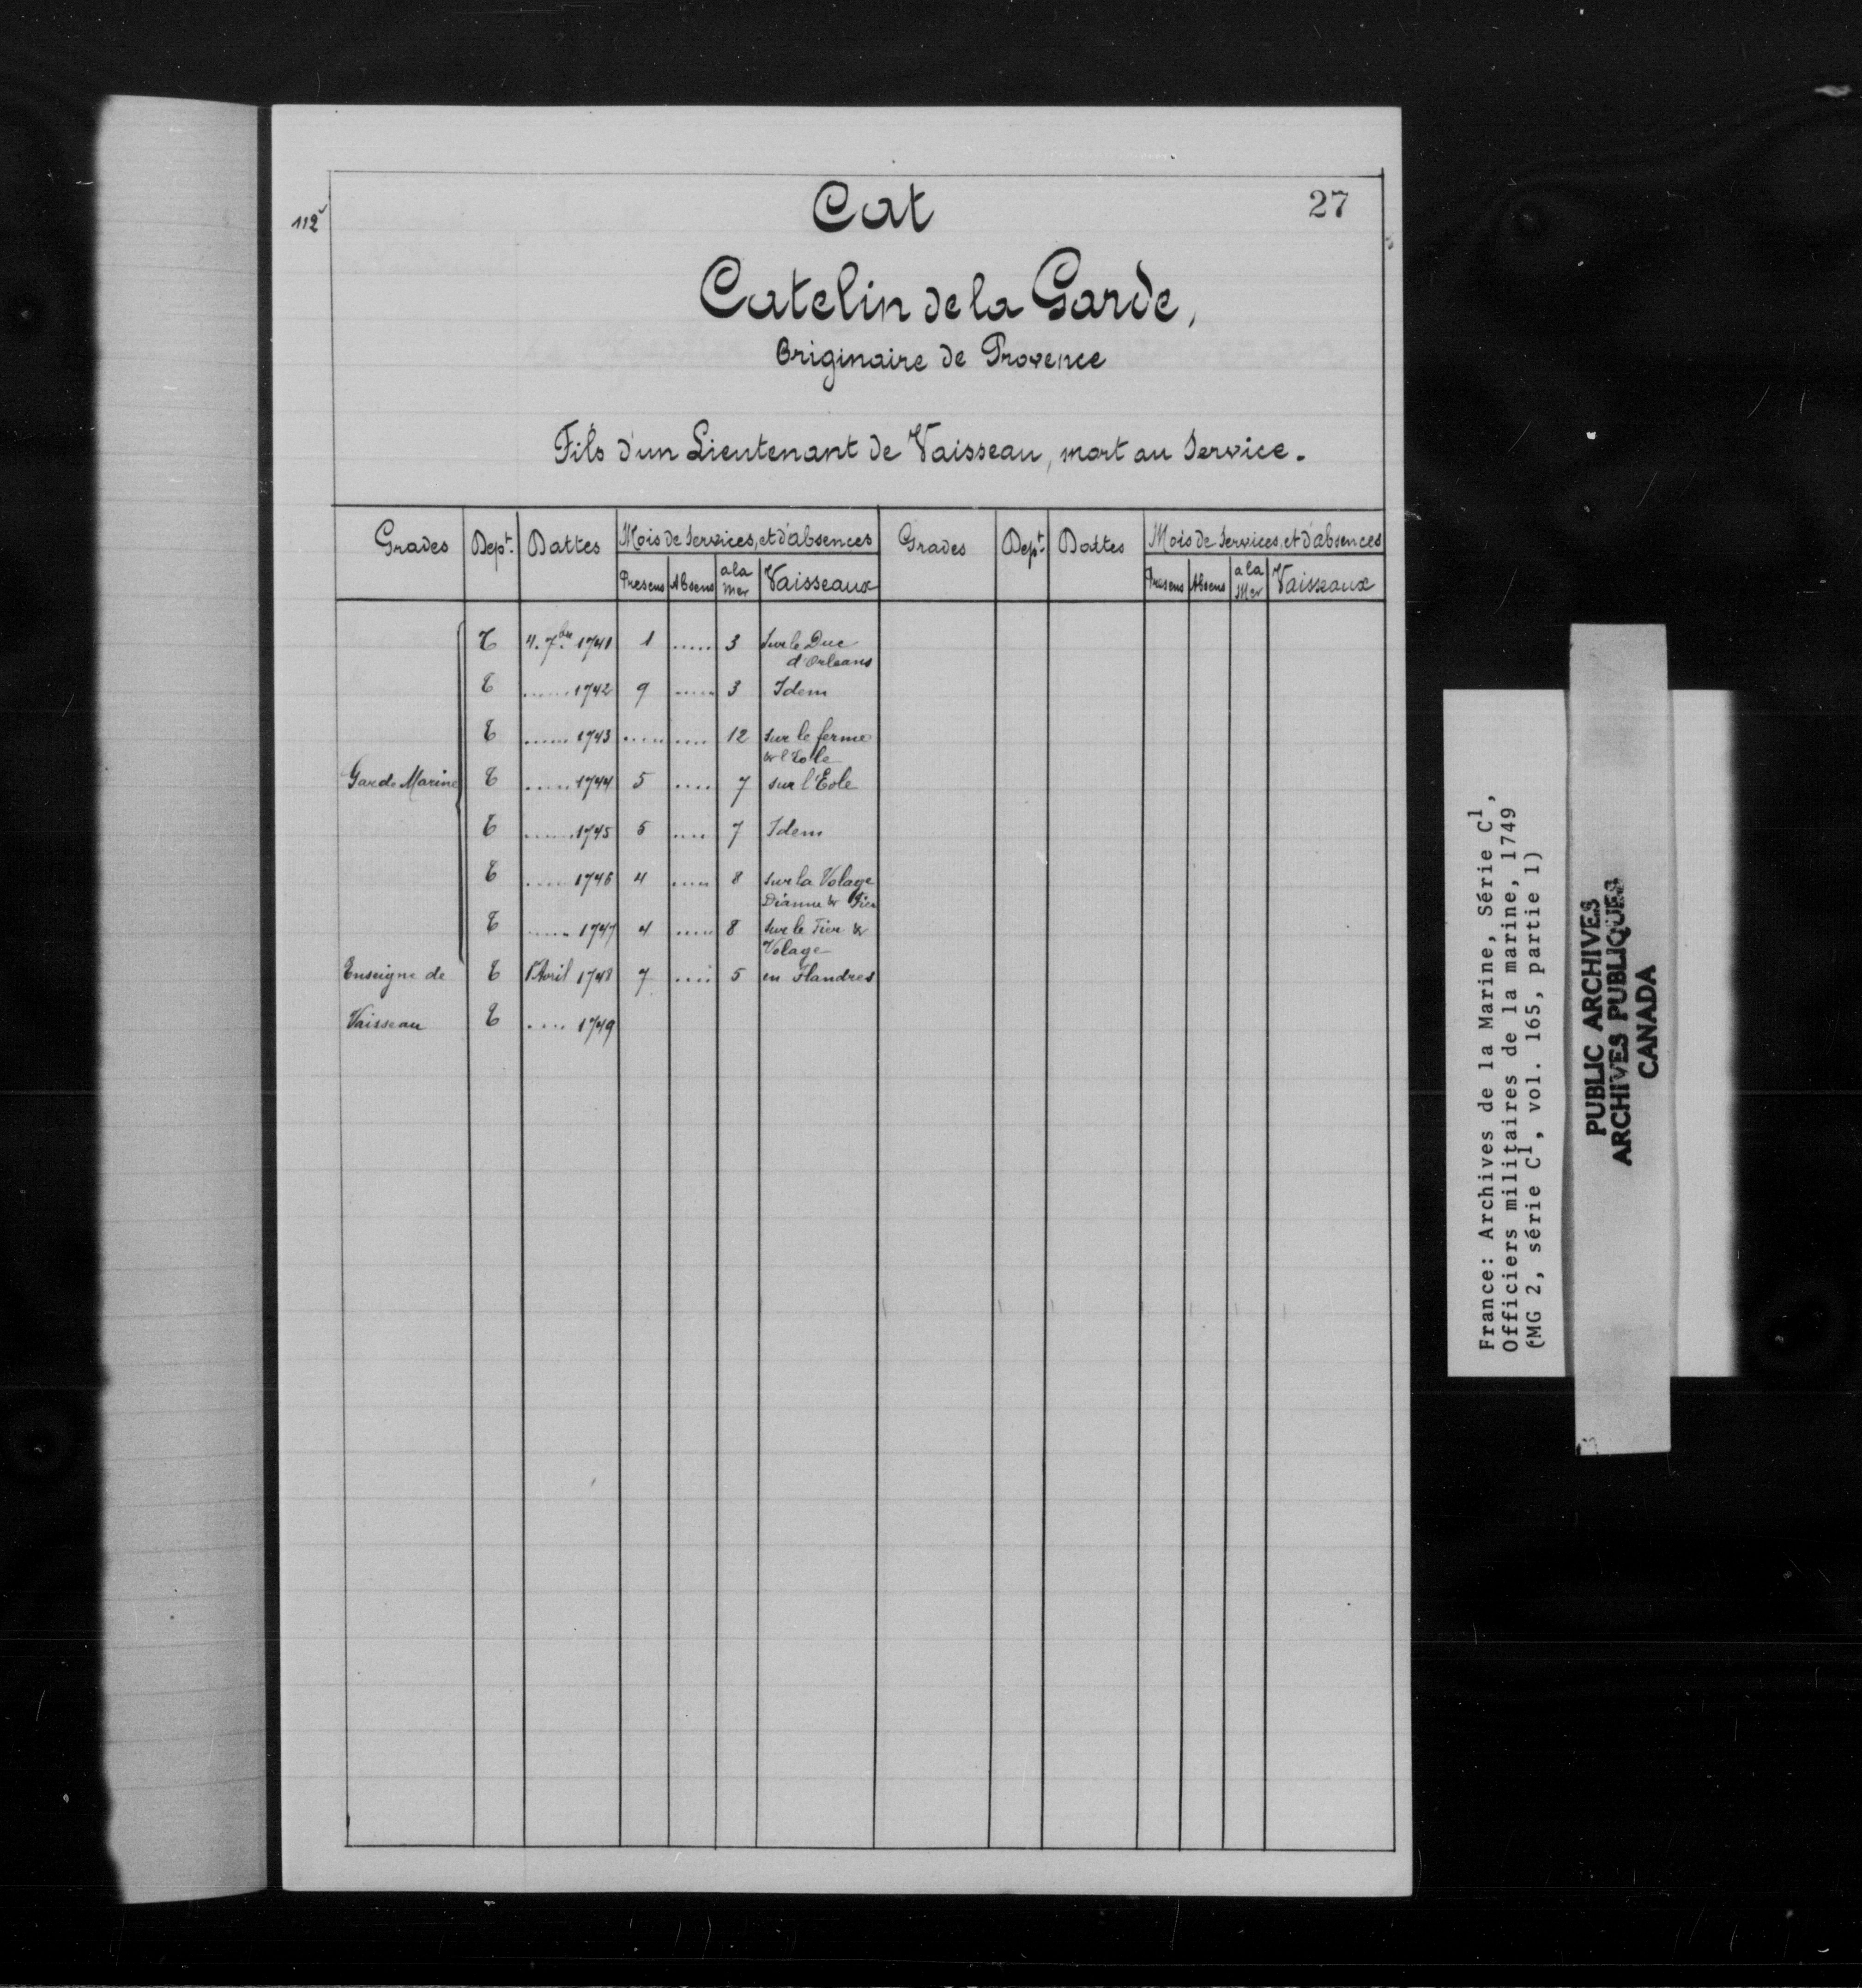 112v
27
Cat
Catelin de la Garde,
Originaire de Provence
Fils d'un Lieutenant de Vaisseau, mort au Service.
Grades Dept. Dattes Mois de Services, et d'absences Grades Dept. Dattes Mois de Services, et d'absences
Presens Absens a la Mer Vaisseaux Presens Absens a la Mer Vaisseaux
T 4. 7bre 1741 1 ..... 3 Sur le Duc
d'Orleans
T ...... 1742 9 ..... 3 Idem
T ...... 1743 ..... .... 12 sur le ferme
& l'Eolle
Garde Marine T ..... 1744 5 .... 7 sur l'Eole
T ...... 1745 5 .... 7 Idem
T ..... 1746 4 .... 8 sur la Volage
Dianne & Fier
T ..... 1747 4 ..... 8 sur le Fier &
Volage
Enseigne de T 1er Avril 1748 7 .... 5 en Flandres
Vaisseau T .... 1749
France: Archives de la Marine, Série C1,
Officiers militaires de la marine, 1749
(MG 2, série C1, vol. 165, partie 1)
PUBLIC ARCHIVES
ARCHIVES PUBLIQUES
CANADA